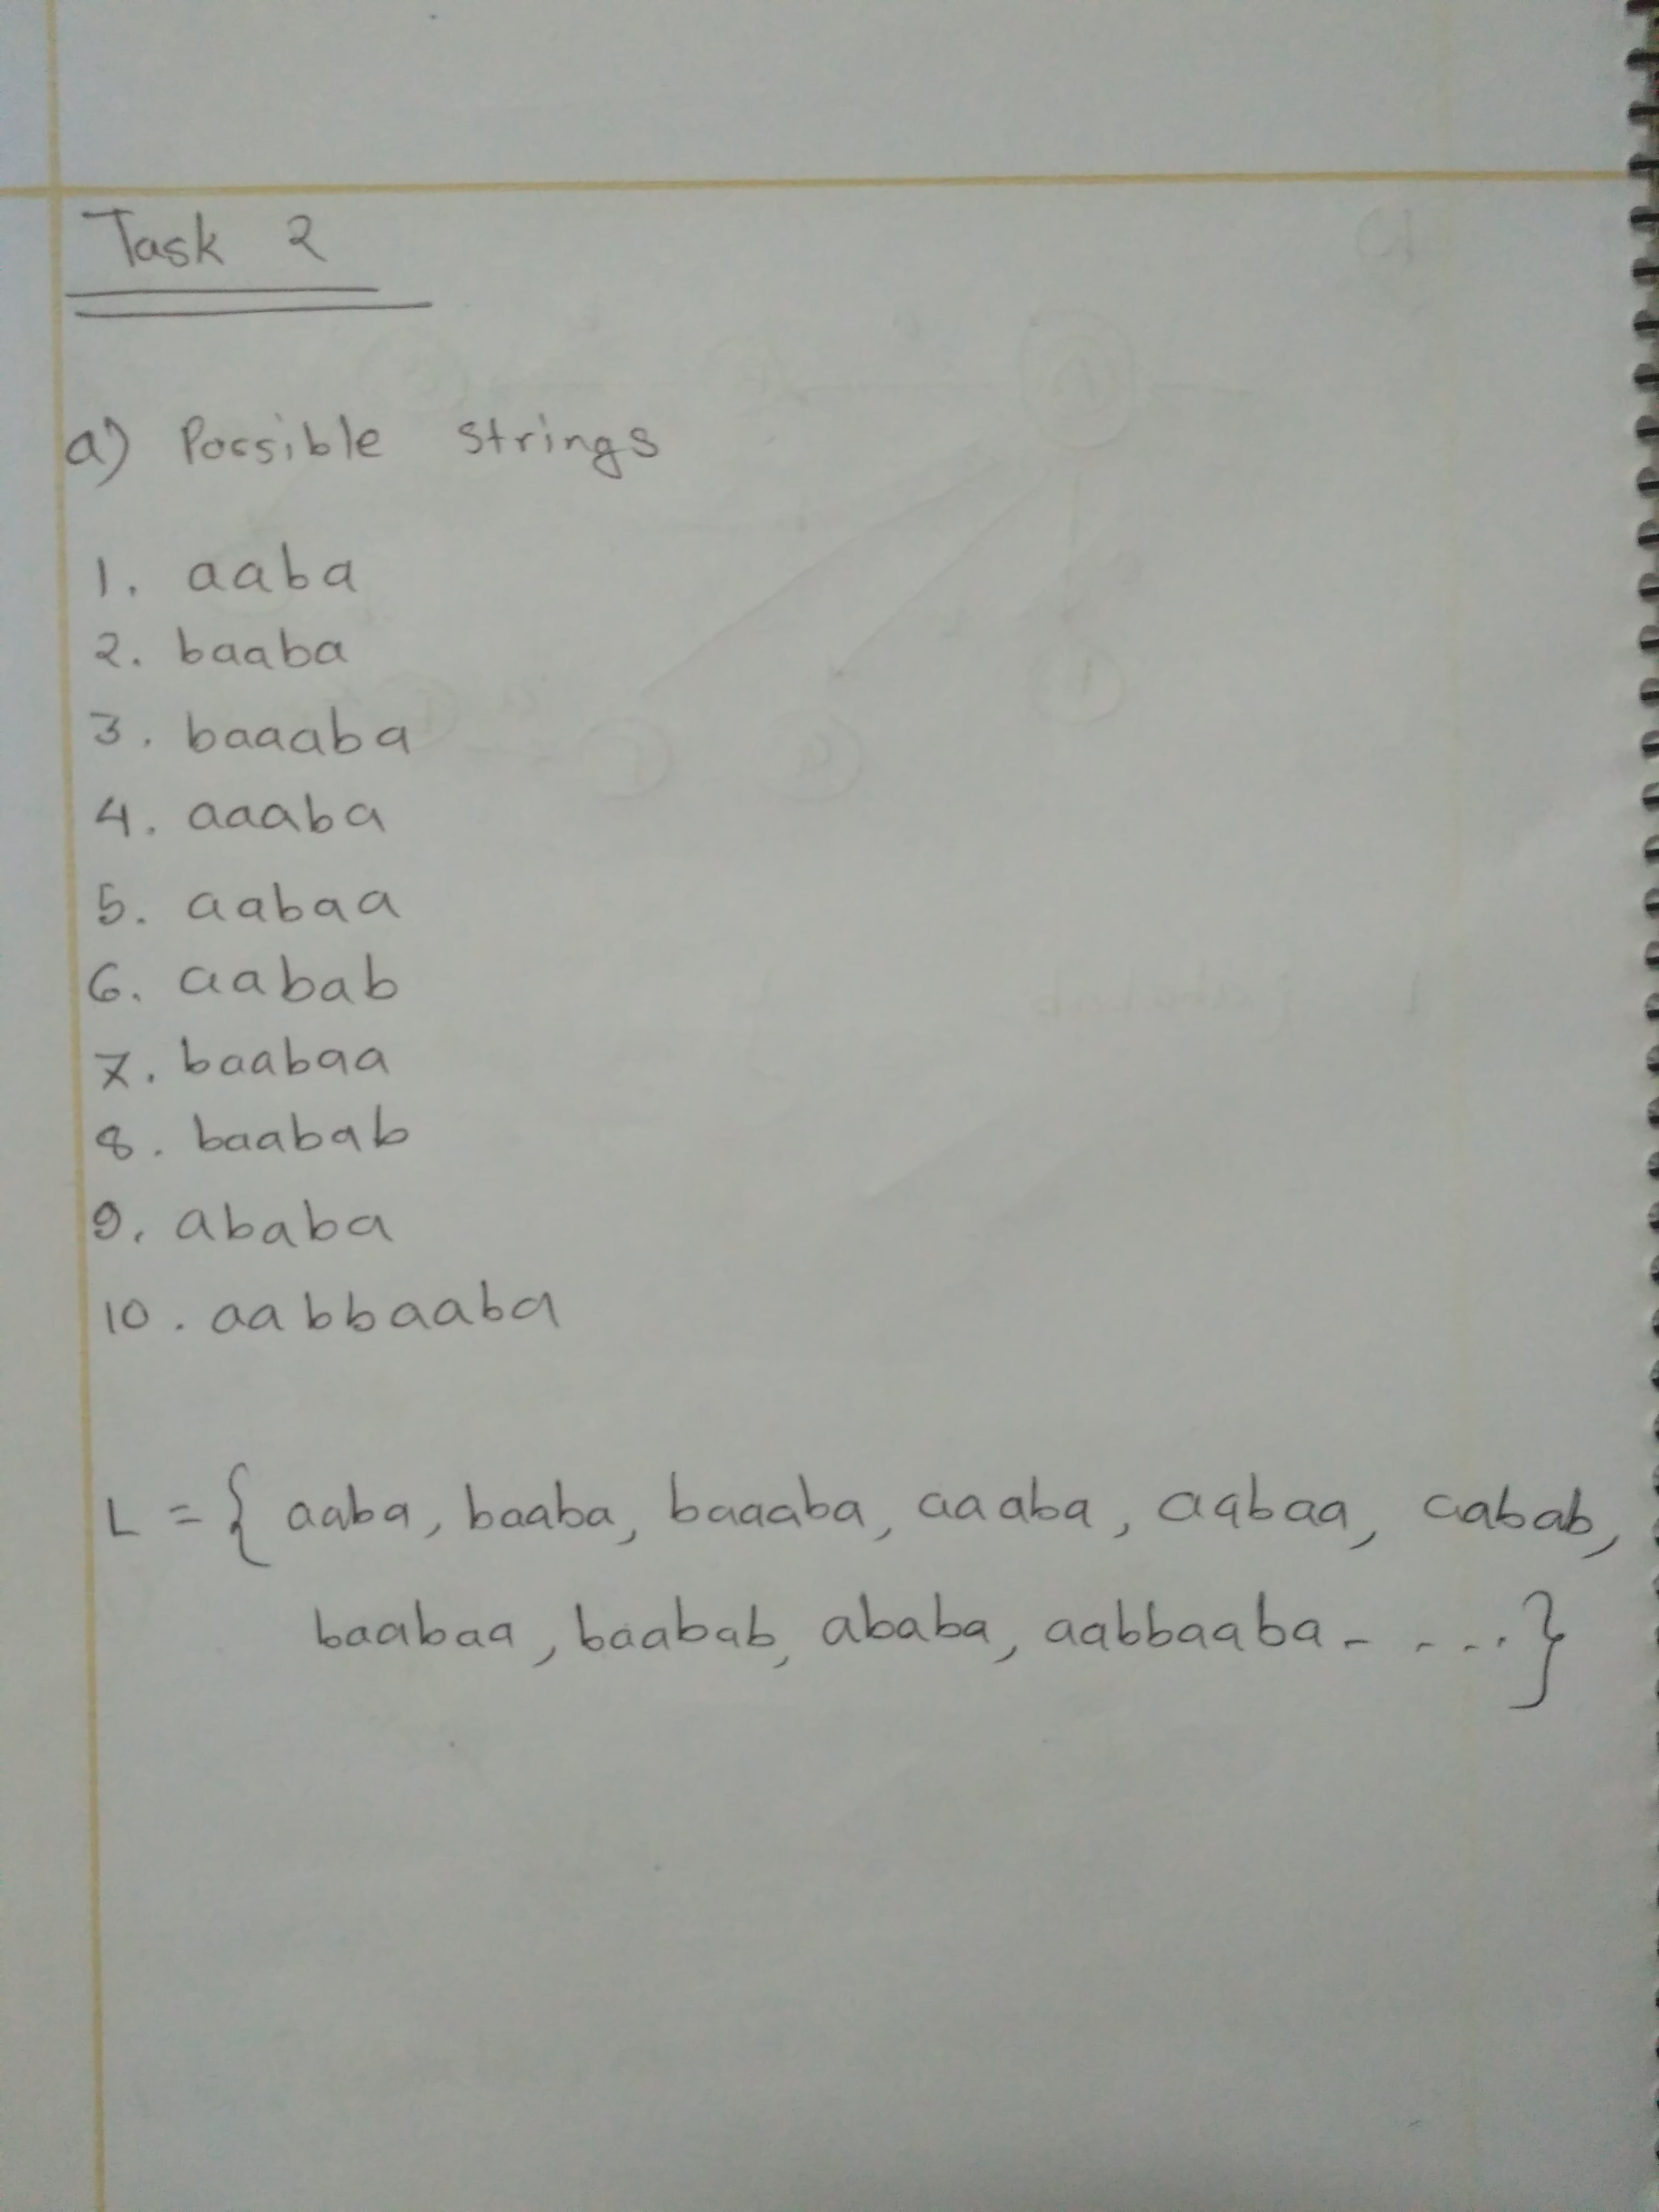 Task 2
a) Possible strings
1. aaba
2. baaba
3. baaaba
4. aaaba
5. aabaa
6. aabab
7. baabaa
8. baabab
9. ababa
10. aabbaaba
L = { aaba, baaba, baaaba, aaaba, aabaa, aabab,
baabaa, baabab, ababa, aabbaaba - - - .. }